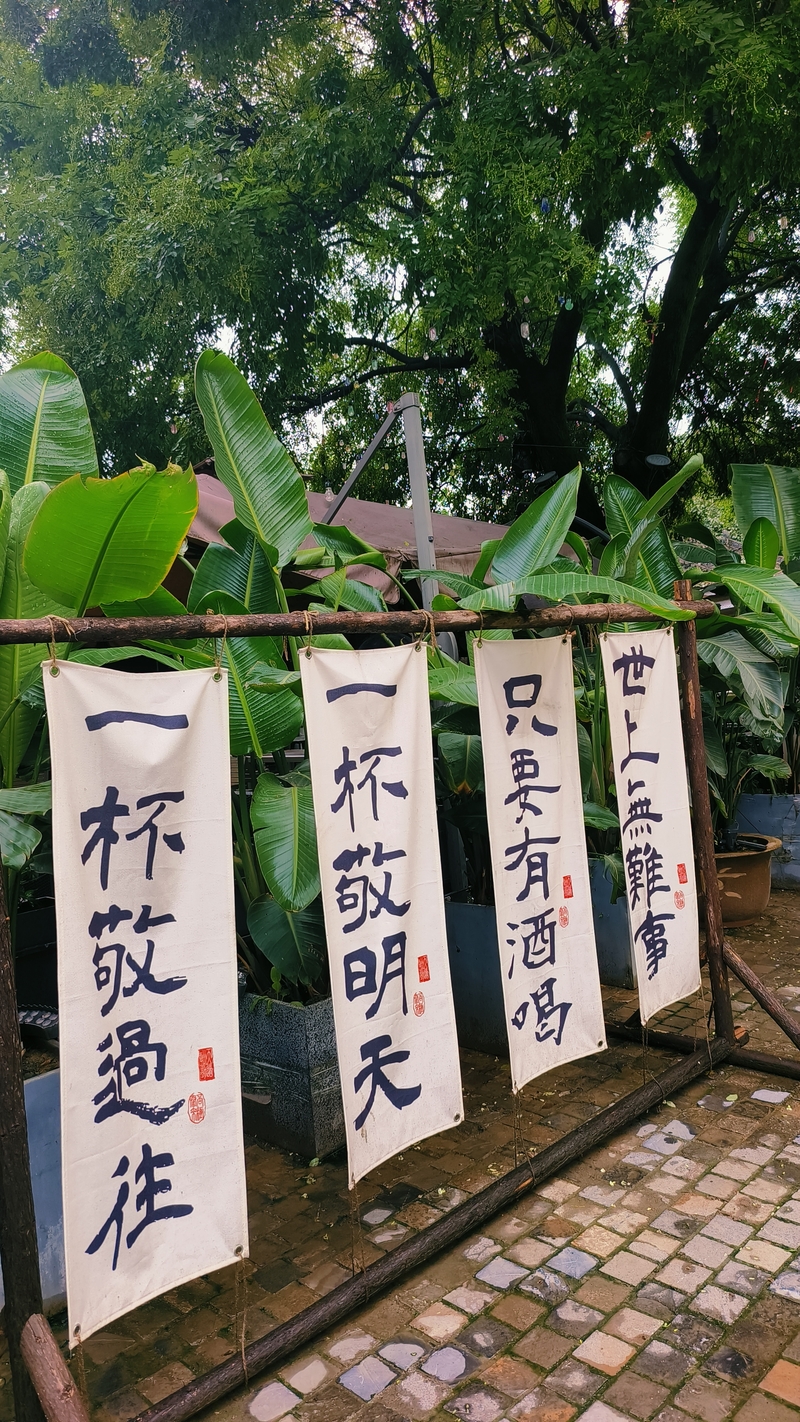 一杯敬過往
一杯敬明天
只要有酒喝
世上無難事